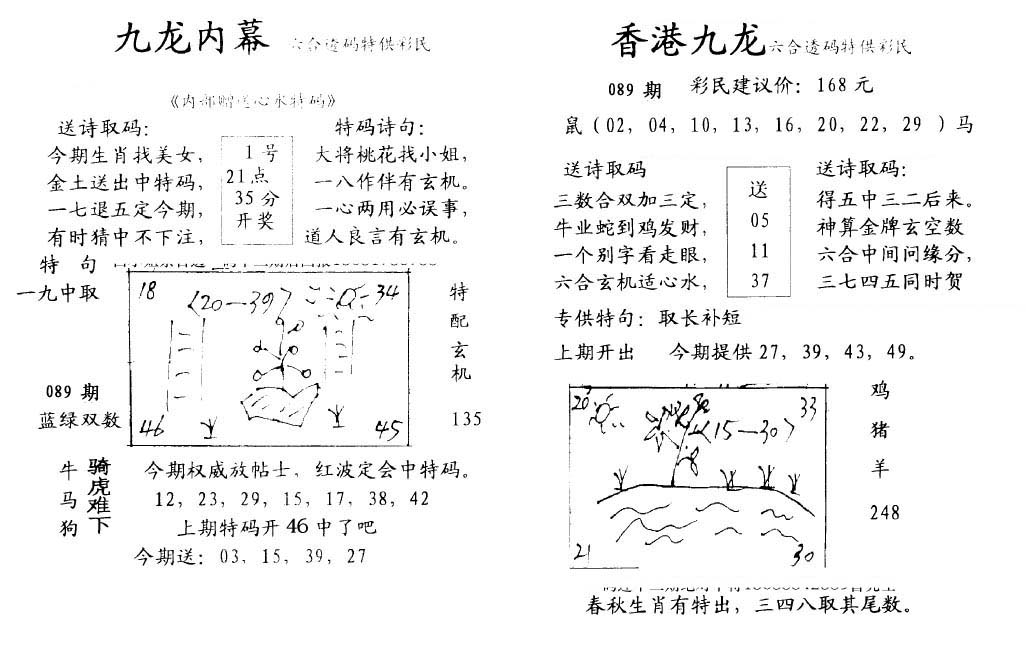 九龙内幕 六合透码特供彩民
《内部赠送心水特码》
送诗取码：
今期生肖找美女，
金土送出中特码，
一七退五定今期，
有时猜中不下注，
1号
21点
35分
开奖
特码诗句：
大将桃花找小姐，
一八作伴有玄机。
一心两用必误事，
道人良言有玄机。
特 句
一九中取
089 期
蓝绿双数
18
〈20—39〉
34
46
45
特
配
玄
机
135
牛
马
狗
骑
虎
难
下
今期权威放帖士，红波定会中特码。
12，23，29，15，17，38，42
上期特码开46中了吧
今期送：03，15，39，27
香港九龙 六合透码特供彩民
089 期 彩民建议价：168元
鼠（02，04，10，13，16，20，22，29 ）马
送诗取码
三数合双加三定，
牛业蛇到鸡发财，
一个别字看走眼，
六合玄机适心水，
送
05
11
37
送诗取码：
得五中三二后来。
神算金牌玄空数
六合中间问缘分，
三七四五同时贺
专供特句：取长补短
上期开出 今期提供27，39，43，49。
20
33
〈15—30〉
21
30
鸡
猪
羊
248
春秋生肖有特出，三四八取其尾数。